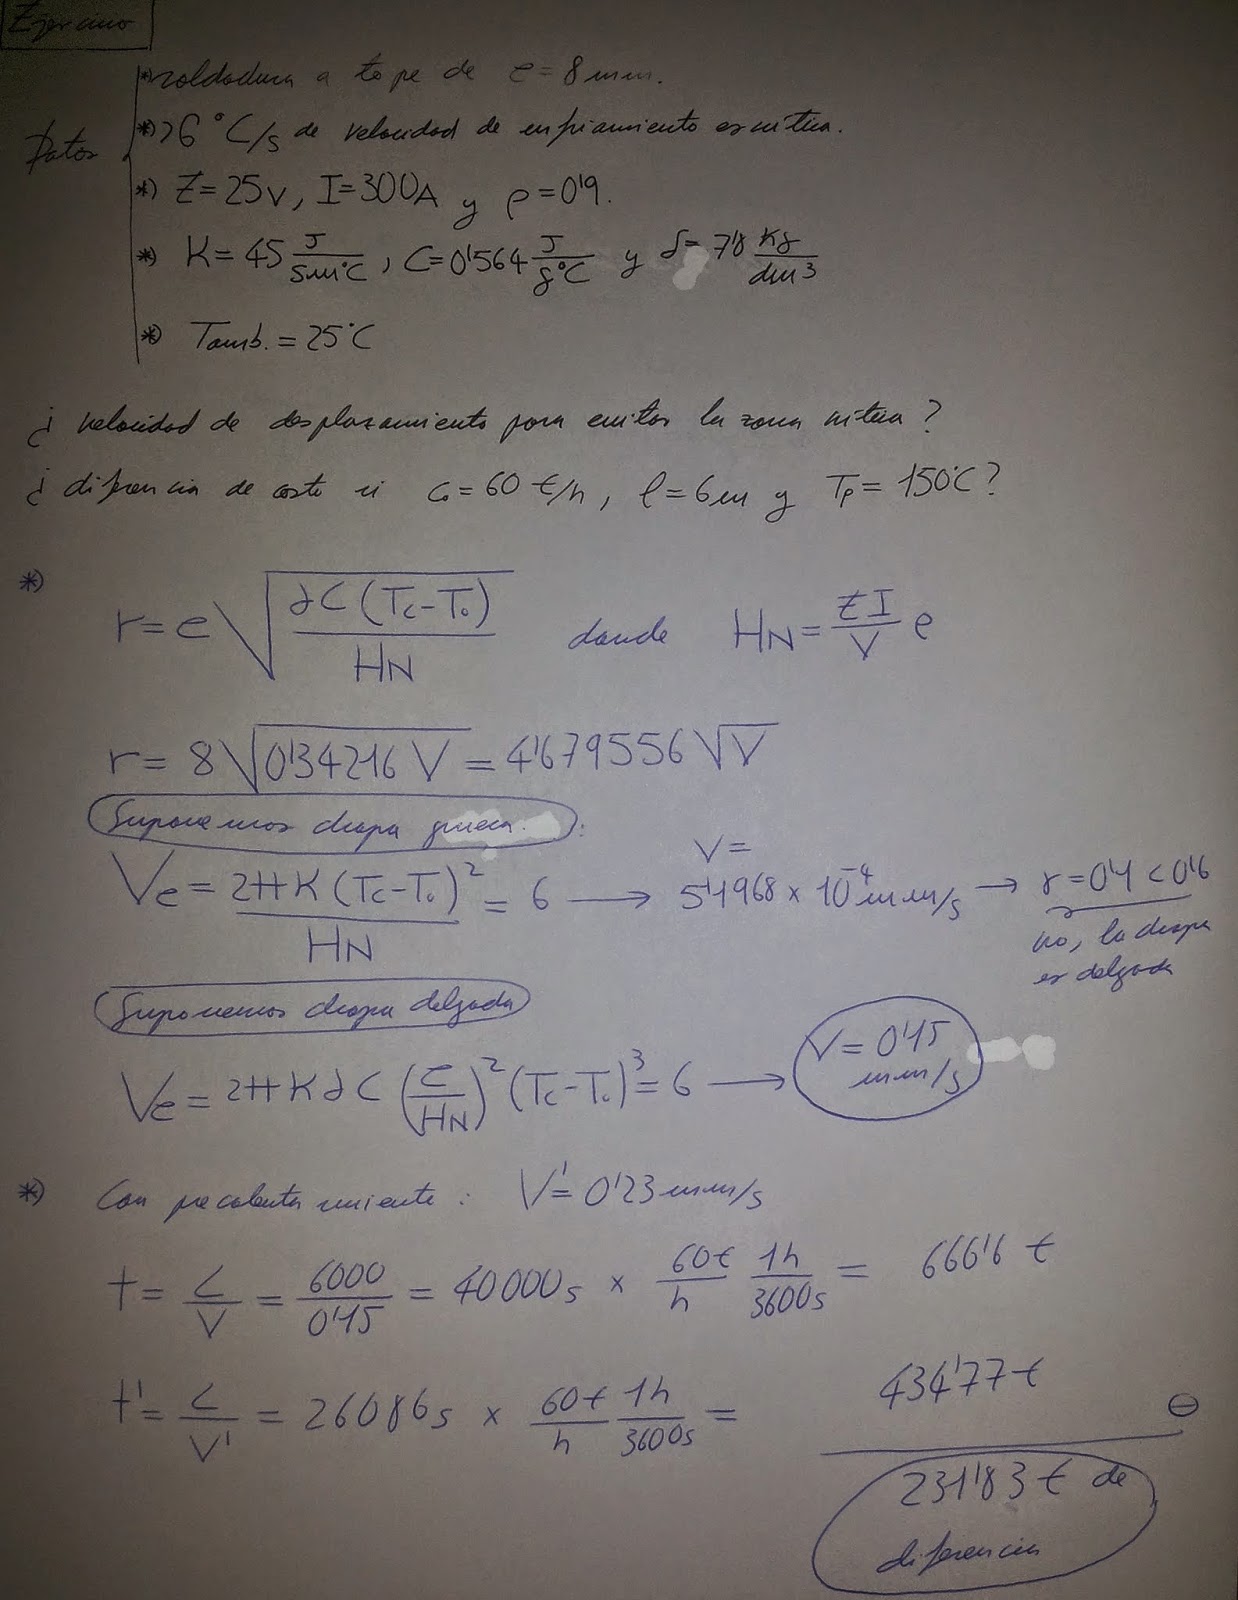 Ejercicio
Datos
*) soldadura a tope de e = 8 mm.
*) >6 °C/s de velocidad de enfriamiento es crítica.
*) E = 25V, I = 300A y ρ = 0'9.
*) K = 45 J/smm°C, C = 0'564 J/g°C y δ = 7'8 Kg/dm³
*) Tamb. = 25°C
¿ velocidad de desplazamiento para evitar la zona crítica ?
¿ diferencia de coste si C₀ = 60 €/h, l = 6m y Tp = 150°C ?
*)
r = e √(δC (Tc-T₀) / HN) donde HN = EI/V ρ
r = 8 √(0'34216 V) = 4'679556 √V
Suponemos chapa gruesa. :
Ve = 2πK (Tc-T₀)² / HN = 6 → V = 5'1968 × 10⁻⁴ mm/s → r = 0'1 < 0'6
no, la chapa
es delgada
Suponemos chapa delgada
Ve = 2πKδC (e/HN)² (Tc-T₀)³ = 6 → V = 0'15 mm/s
*) Con precalentamiento : V' = 0'23 mm/s
t = L/V = 6000/0'15 = 40000s × 60€/h 1h/3600s = 666'6 €
t' = L/V' = 26086s × 60€/h 1h/3600s = 434'77 €
⊖
231'83 € de
diferencia